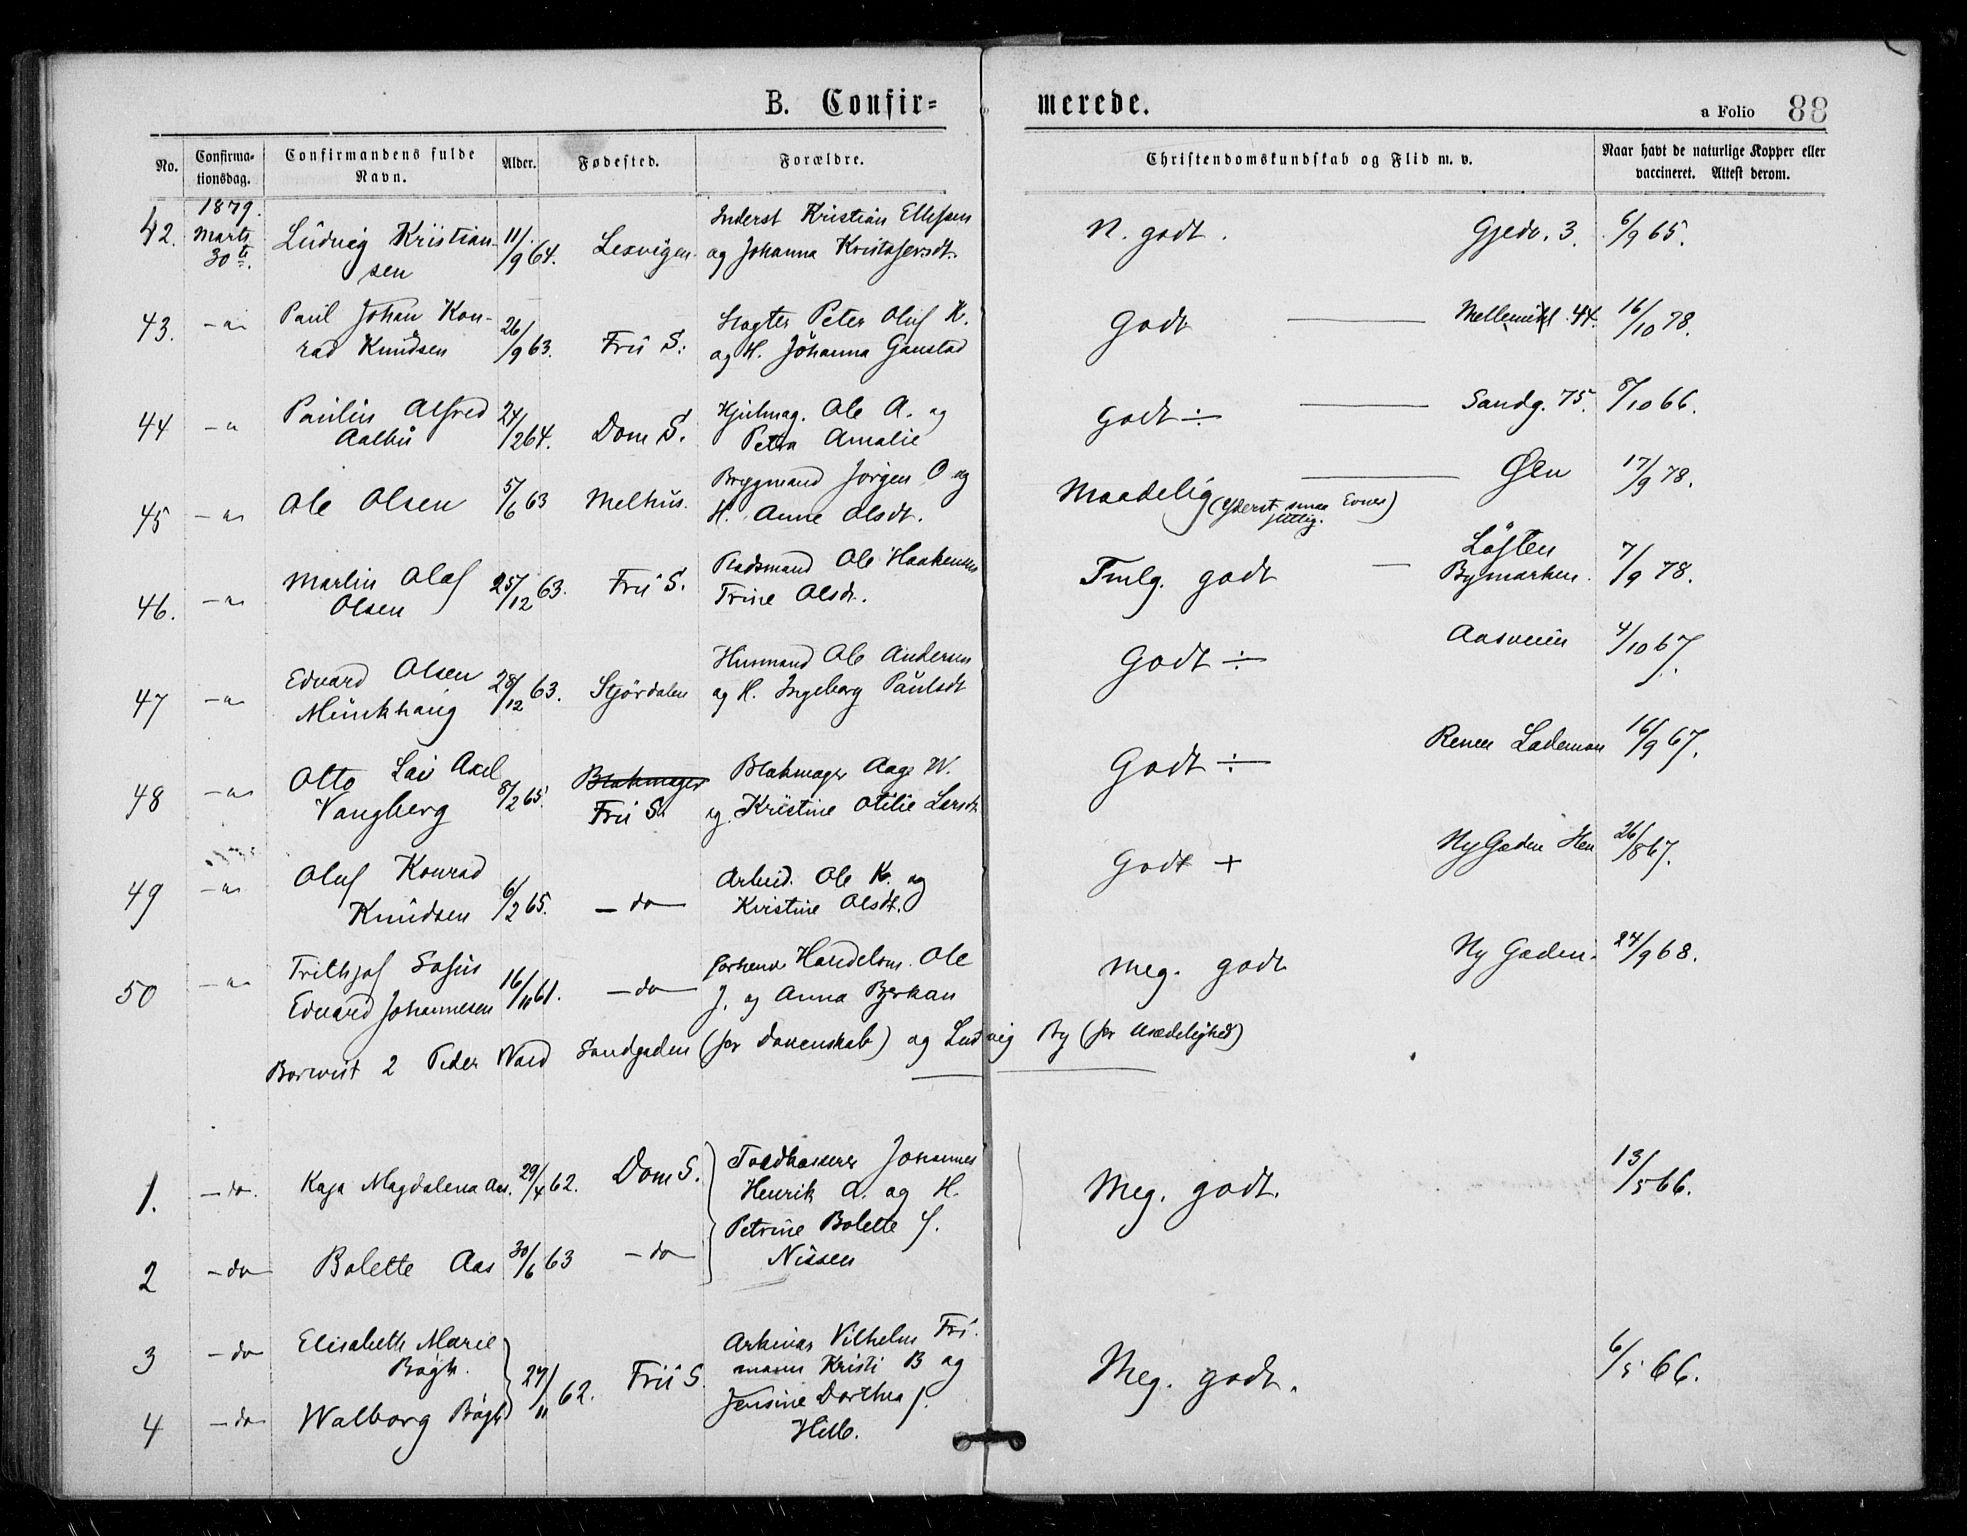 B. Confir= merede.
a Folio 88
No. Confirma-tionsdag. Confirmandens fulde Navn. Alder. Fødested. Forældre. Christendomskundskab og Flid m. v. Naar havt de naturlige Kopper eller vaccineret. Attest derom.
1879.
42. Marts 30te. Ludvig Kristian- 11/9 64. Lesvigen Inderst Kristian Ellefsen N. godt. Gjedv. 3. 6/9 65.
sen og Johanna Kristofersdt.
43. Paul Johan Kon- 26/9 63. Frü S. Slagter Peter Oluf K. Godt Mellemihl. 44. 16/10 78.
rad Knudsen og H. Johanna Ganstad
44 Paulin Alfred 24/2 64. Dom S. Hjulmag. Ole A. og Godt ÷ Sandg. 75. 8/10 66.
Aalbu Petra Amalie
45 Ole Olsen 5/6 63 Melhus. Brygmand Jørgen O og Maadelig (yderst smaa Evner) Øen 17/9 78.
H. Anne Olsdt. flittig.
46. Martin Olaf 25/12 63. Frü S. Pladsmand Ole Haakensen Tmlg. godt Løften 7/9 78.
Olsen Trine Olsdt. Bymarken.
47 Edvard Olsen 28/12 63. Stjørdalen Husmand Ole Andersen Godt ÷ Aasveien 4/10 67.
Munkhaug og H. Ingeborg Paulsdt
48 Otto Lai Axel 8/2 65. Blokmager Blokmager Aage W. Godt ÷ Renen Lademoen 16/9 67.
Vangberg Frü S. og Kristine Otilie Larsdt.
49 Oluf Konrad 6/2 65. — do — Arbeid. Ole K. og Godt + Ny Gaden 26/8 67.
Knudsen Kristine Olsdt.
50 Frithjof Sofus 16/11 61. — do — forhenv Handelsm. Ole Meg. godt Ny Gaden. 24/9 68.
Edvard Johannesen J. og Anna Bjerkan
Bortvist 2 Peder Ward Sandgaden (for Dovenskab) og Ludvig By (for Usædelighed)
1. — do. Kaja Magdalena Aas. 29/4 62. Dom S. Toldkasserer Johannes Meg. godt. 13/5 66.
Henrik A. og H.
Petrine Bolette f.
2 — do — Bolette Aas 30/6 63 — do — Nissen
3 — do Elisabeth Marie Arkivar Vilhelm Fri- 6/5 66.
Bøgh. 27/11 62. Frü S. mann Kristi B og Meg. godt.
4 — do — Walborg Bøgh Jensine Dorthea f.